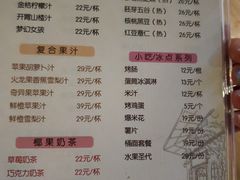 金桔柠檬汁 22元/杯
开胃山楂汁 26元/杯
梦幻女孩 22元/杯
复合果汁
苹果胡萝卜汁 29元/杯
火龙果香蕉雪梨汁 29元/杯
奇异果苹果汁 29元/杯
鲜橙苹果汁 29元/杯
鲜橙雪梨汁 29元/杯
椰果奶茶
草莓奶茶 22元/杯
巧克力奶茶 22元/杯
胚芽五谷（热） 26元/杯
核桃黑豆（热） 26元/杯
红豆薏仁（热） 26元/杯
小吃/冰点系列
烤肠 10元/根
蛋筒冰淇淋 13元/个
米汁 12元/杯
烤鸡蛋 5元/个
爆米花 19元/份
薯片 19元/份
桶面套餐 19元/份
水果圣代 22元/份